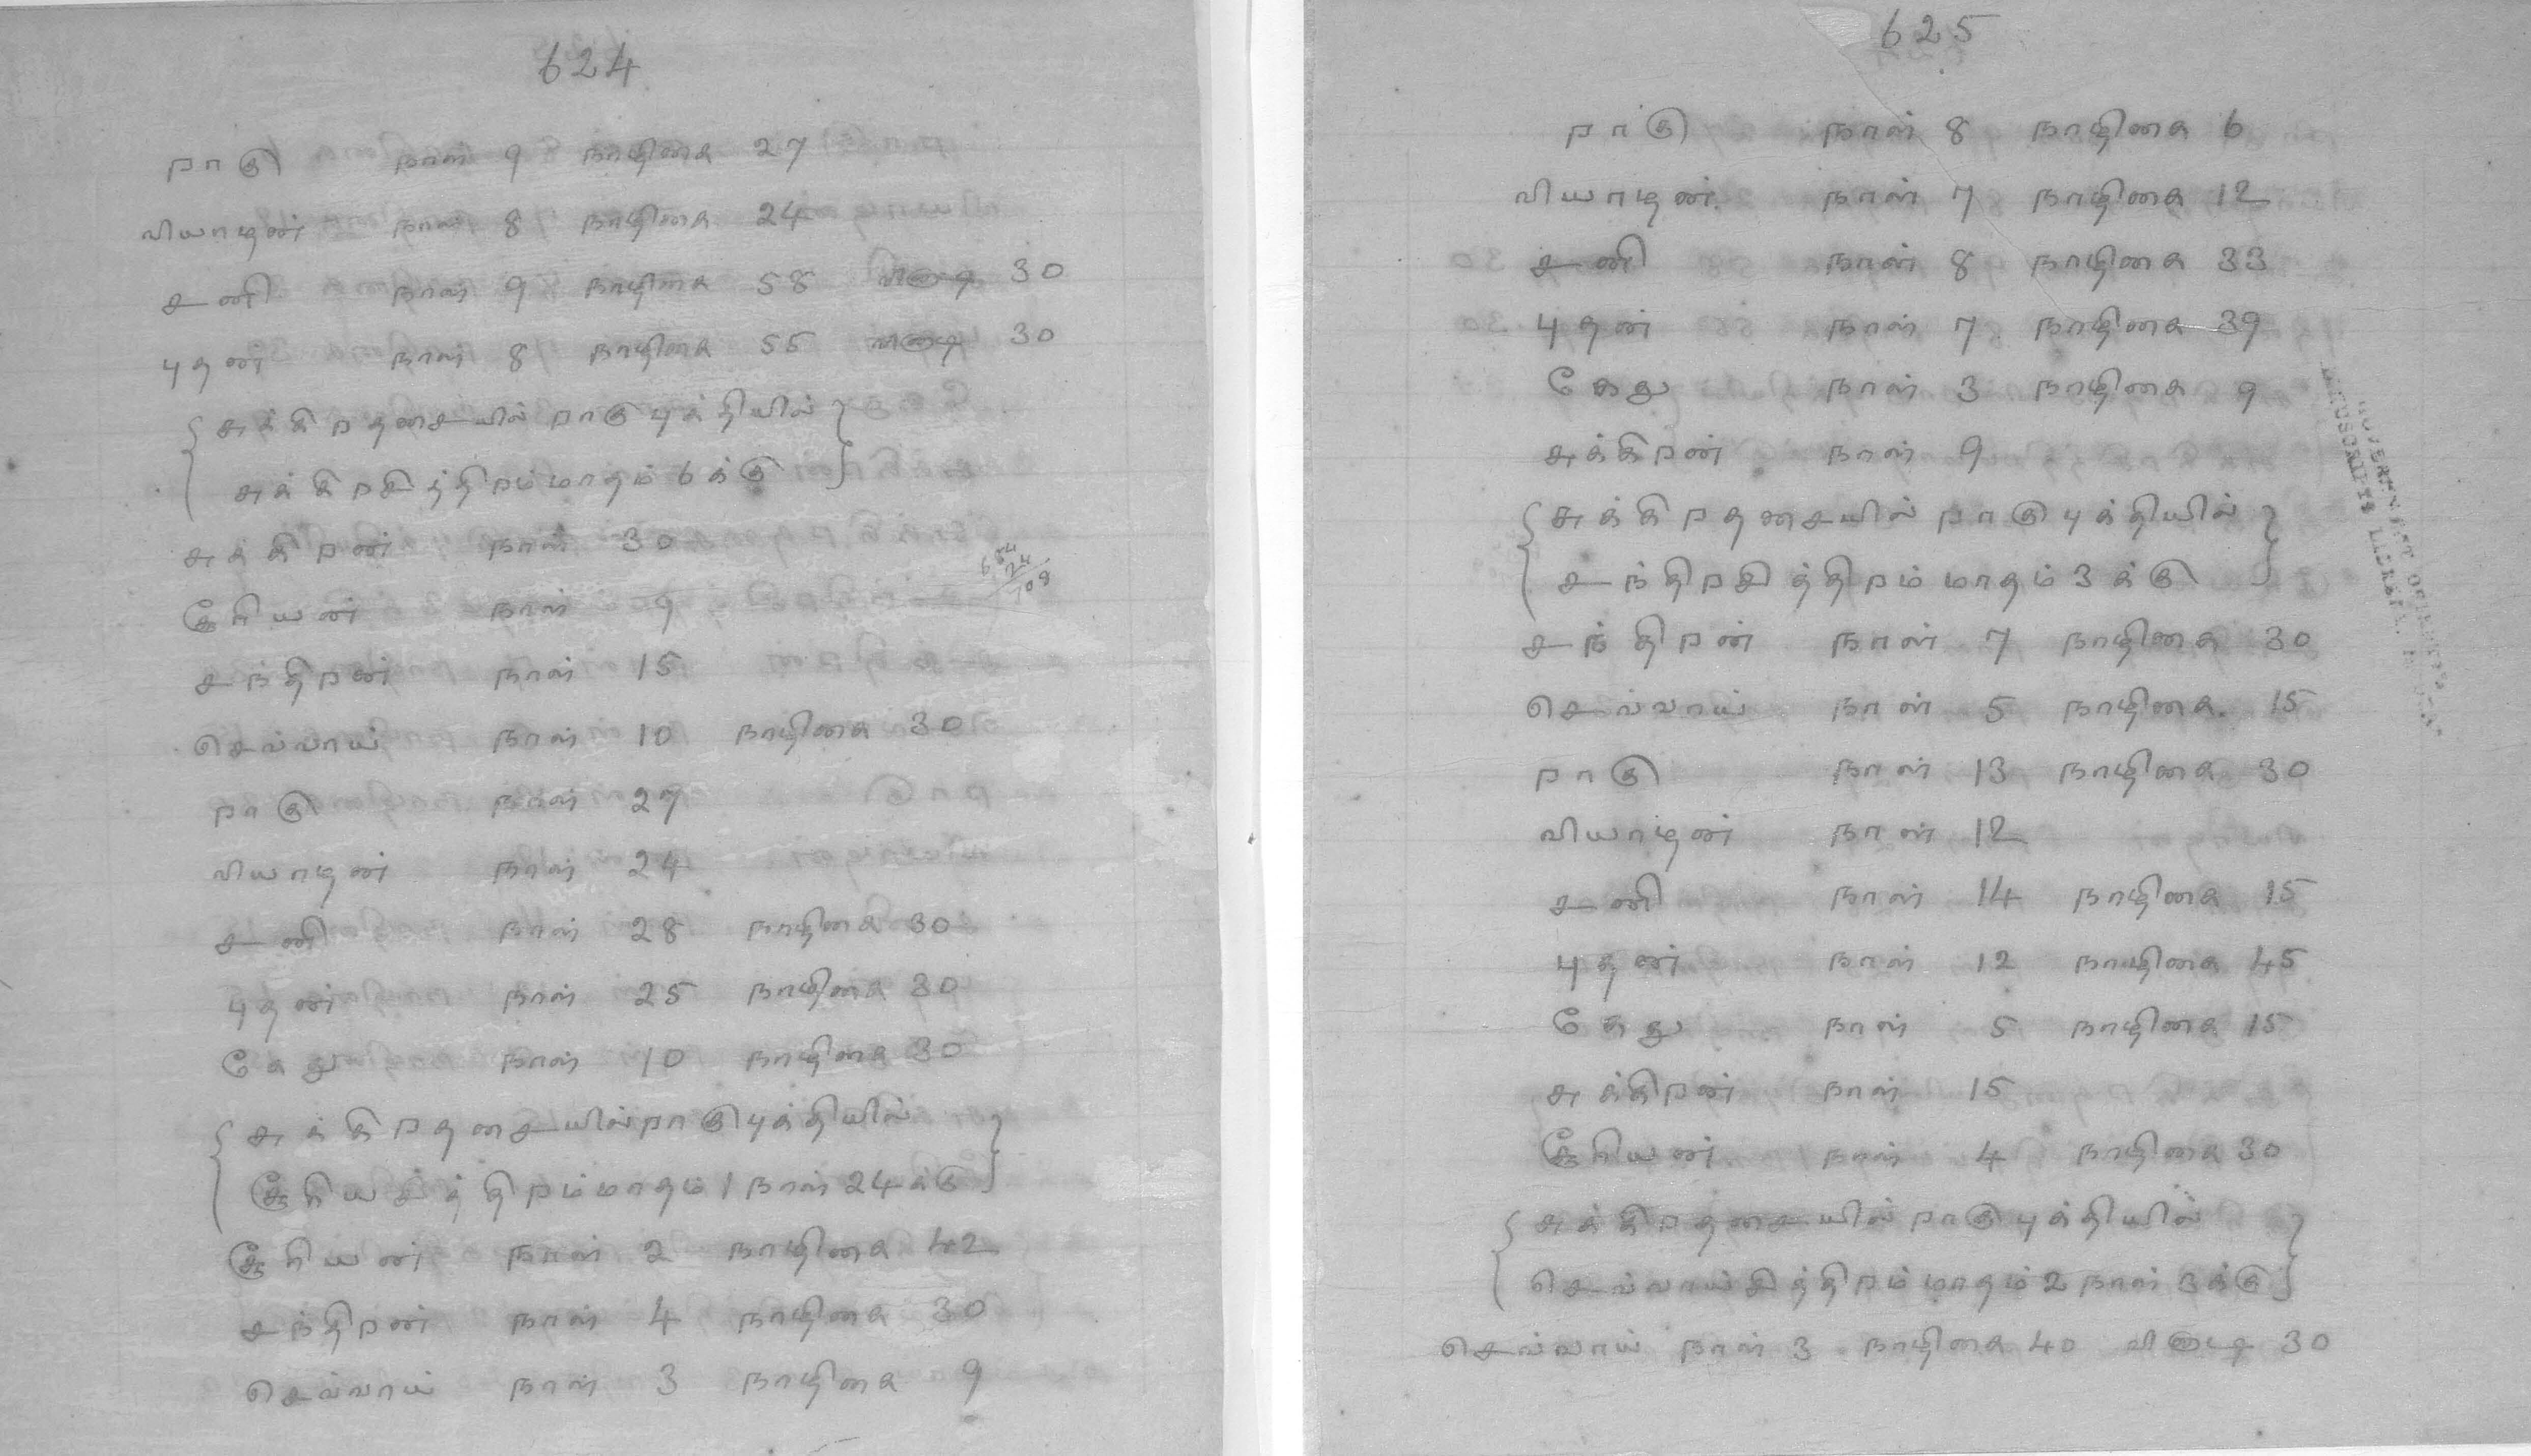 624
ராகு நாள் 9 நாழிகை 27
வியாழன் நாள் 8 நாழிகை 24
சனி நாள் 9 நாழிகை 58 வினாடி 30
புதன் நாள் 8 நாழிகை 55 வினாடி 30
{சுக்கிரதசையில் ராகு புக்தியில்
சுக்கிரசித்திரம் மாதம் 6 க்கு}
சுக்கிரன் நாள் 30
சூரியன் நாள் 9
சந்திரன் நாள் 15
செவ்வாய் நாள் 10 நாழிகை 30
ராகு நாள் 27
வியாழன் நாள் 24
சனி நாள் 28 நாழிகை 30
புதன் நாள் 25 நாழிகை 30
கேது நாள் 10 நாழிகை 30
{சுக்கிரதசையில் ராகு புக்தியில்
சூரியசித்திரம் மாதம் 1 நாள் 24க்கு}
சூரியன் நாள் 2 நாழிகை 42
சந்திரன் நாள் 4 நாழிகை 30
செவ்வாய் நாள் 3 நாழிகை 9
625
ராகு நாள் 8 நாழிகை 6
வியாழன் நாள் 7 நாழிகை 12
சனி நாள் 8 நாழிகை 33
புதன் நாள் 7 நாழிகை 39
கேது நாள் 3 நாழிகை 9
சுக்கிரன் நாள் 9
{சுக்கிரதசையில் ராகு புக்தியில்
சந்திரசித்திரம் மாதம் 3 க்கு}
சந்திரன் நாள் 7 நாழிகை 30
செவ்வாய் நாள் 5 நாழிகை 15
ராகு நாள் 13 நாழிகை 30
வியாழன் நாள் 12
சனி நாள் 14 நாழிகை 15
புதன் நாள் 12 நாழிகை 45
கேது நாள் 5 நாழிகை 15
சுக்கிரன் நாள் 15
சூரியன் நாள் 4 நாழிகை 30
{சுக்கிரதசையில் ராகு புக்தியில்
செவ்வாய்சித்திரம் மாதம் 2 நாள் 3க்கு}
செவ்வாய் நாள் 3 நாழிகை 40 வினாடி 30
GOVERNMENT
MANUSCRIPTS